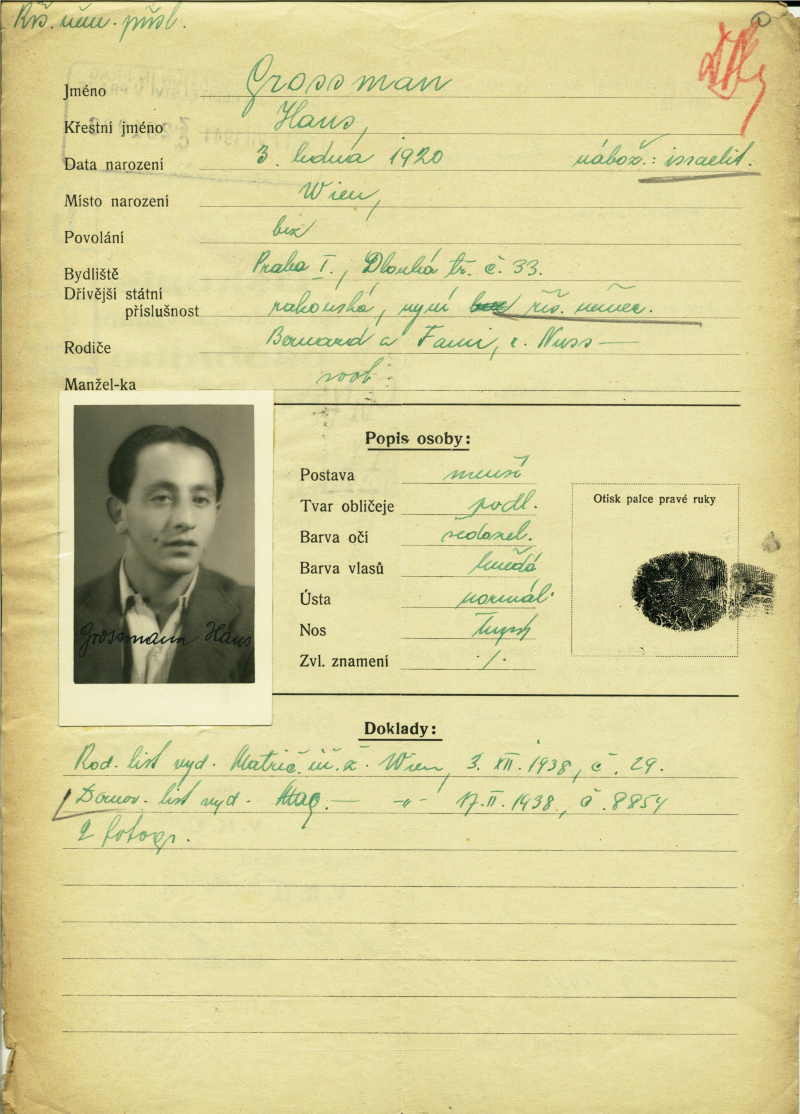 Říš. něm. přísl.
Jméno Grossman
Křestní jméno Hans,
Data narození 3. ledna 1920 nábož.: israelit.
Místo narození Wien,
Povolání bez
Bydliště Praha I., Dlouhá tř. č. 33.
Dřívější státní
příslušnost rakouská, nyní říš. němec.
Rodiče Bernard a Fanni, r. Nuss —
Manžel-ka svob.
Popis osoby:
Postava menší
Tvar obličeje podl.
Barva očí šedozel.
Barva vlasů hnědá
Ústa normál.
Nos
Zvl. znamení /.
Otisk palce pravé ruky
Grossmann Hans
Doklady:
Rod. list vyd. Matrič. ú. ž. Wien, 3. XII. 1938, č. 29.
Domov. list vyd. Mag. — -„- 17. II. 1938, č. 8854
2 fotogr.